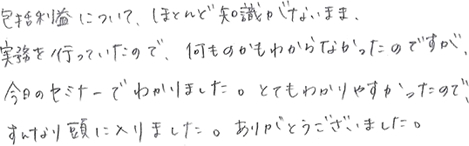 包括利益について、ほとんど知識がないまま、
実務を行っていたので、何ものかもわからなかったのですが
今日のセミナーでわかりました。とてもわかりやすかったので、
すんなり頭に入りました。ありがとうございました。